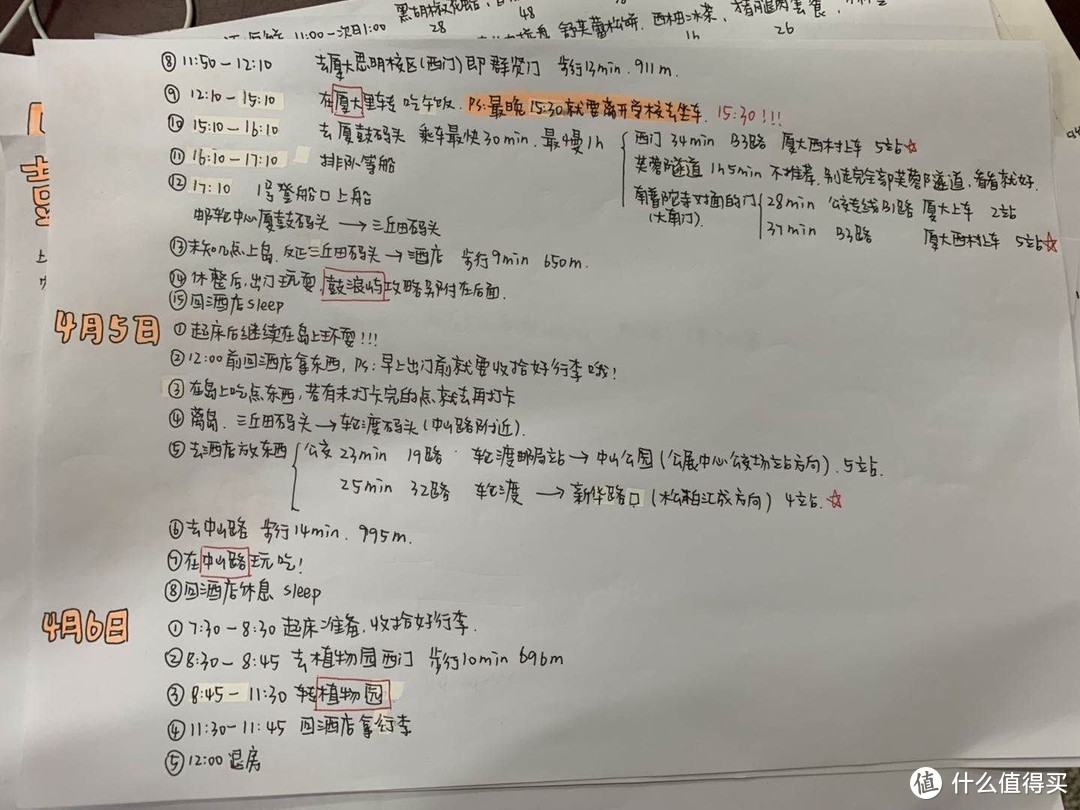 黑胡椒
11:00-次日1:00 28 48 舒芙蕾松饼. 西柚冰茶, 猪腿肉套餐
16 26
⑧ 11:50-12:10 去厦大思明校区(西门)即群贤门 步行13min. 911m.
⑨ 12:10-15:10 在厦大里转 吃午饭. Ps:最晚15:30就要离开学校去坐车. 15:30!!!
⑩ 15:10-16:10 去厦鼓码头 乘车最快30min. 最慢1h
西门 34min B3路 厦大西村上车 5站☆
芙蓉隧道 1h5min 不推荐, 别走完全部芙蓉隧道, 看看就好.
南普陀寺对面的门(大南门)
28min 公交专线B1路 厦大上车 2站
37min B3路 厦大西村上车 5站☆
⑪ 16:10-17:10 排队等船
⑫ 17:10 1号登船口上船
邮轮中心厦鼓码头 → 三丘田码头
⑬ 未知几点上岛. 反正三丘田码头→酒店 步行9min 650m.
⑭ 休整后, 出门玩耍, 鼓浪屿攻略另附在后面.
⑮ 回酒店sleep
4月5日
① 起床后继续在岛上玩耍!!!
② 12:00前回酒店拿东西, Ps:早上出门前就要收拾好行李哦!
③ 在岛上吃点东西, 若有未打卡完的点就去再打卡
④ 离岛. 三丘田码头→轮渡码头(中山路附近).
⑤ 去酒店放东西
公交 23min 19路 · 轮渡邮局站→中山公园(公展中心公交场站方向). 5站.
25min 32路 轮渡 → 新华路口(松柏江成方向) 4站.☆
⑥ 去中山路 步行14min. 995m.
⑦ 在中山路玩吃!
⑧ 回酒店休息 sleep
4月6日
① 7:30-8:30 起床准备, 收拾好行李.
② 8:30-8:45 去植物园西门 步行10min 696m
③ 8:45-11:30 转植物园
④ 11:30-11:45 回酒店拿行李
⑤ 12:00 退房
值 什么值得买